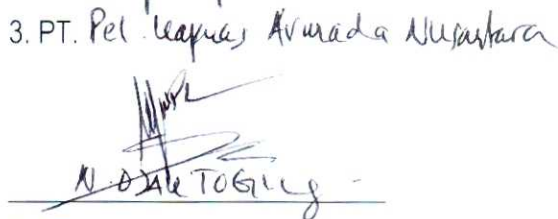 3. PT. Pel. Kapuas Armada Nusantara
N. DJAK TOGING